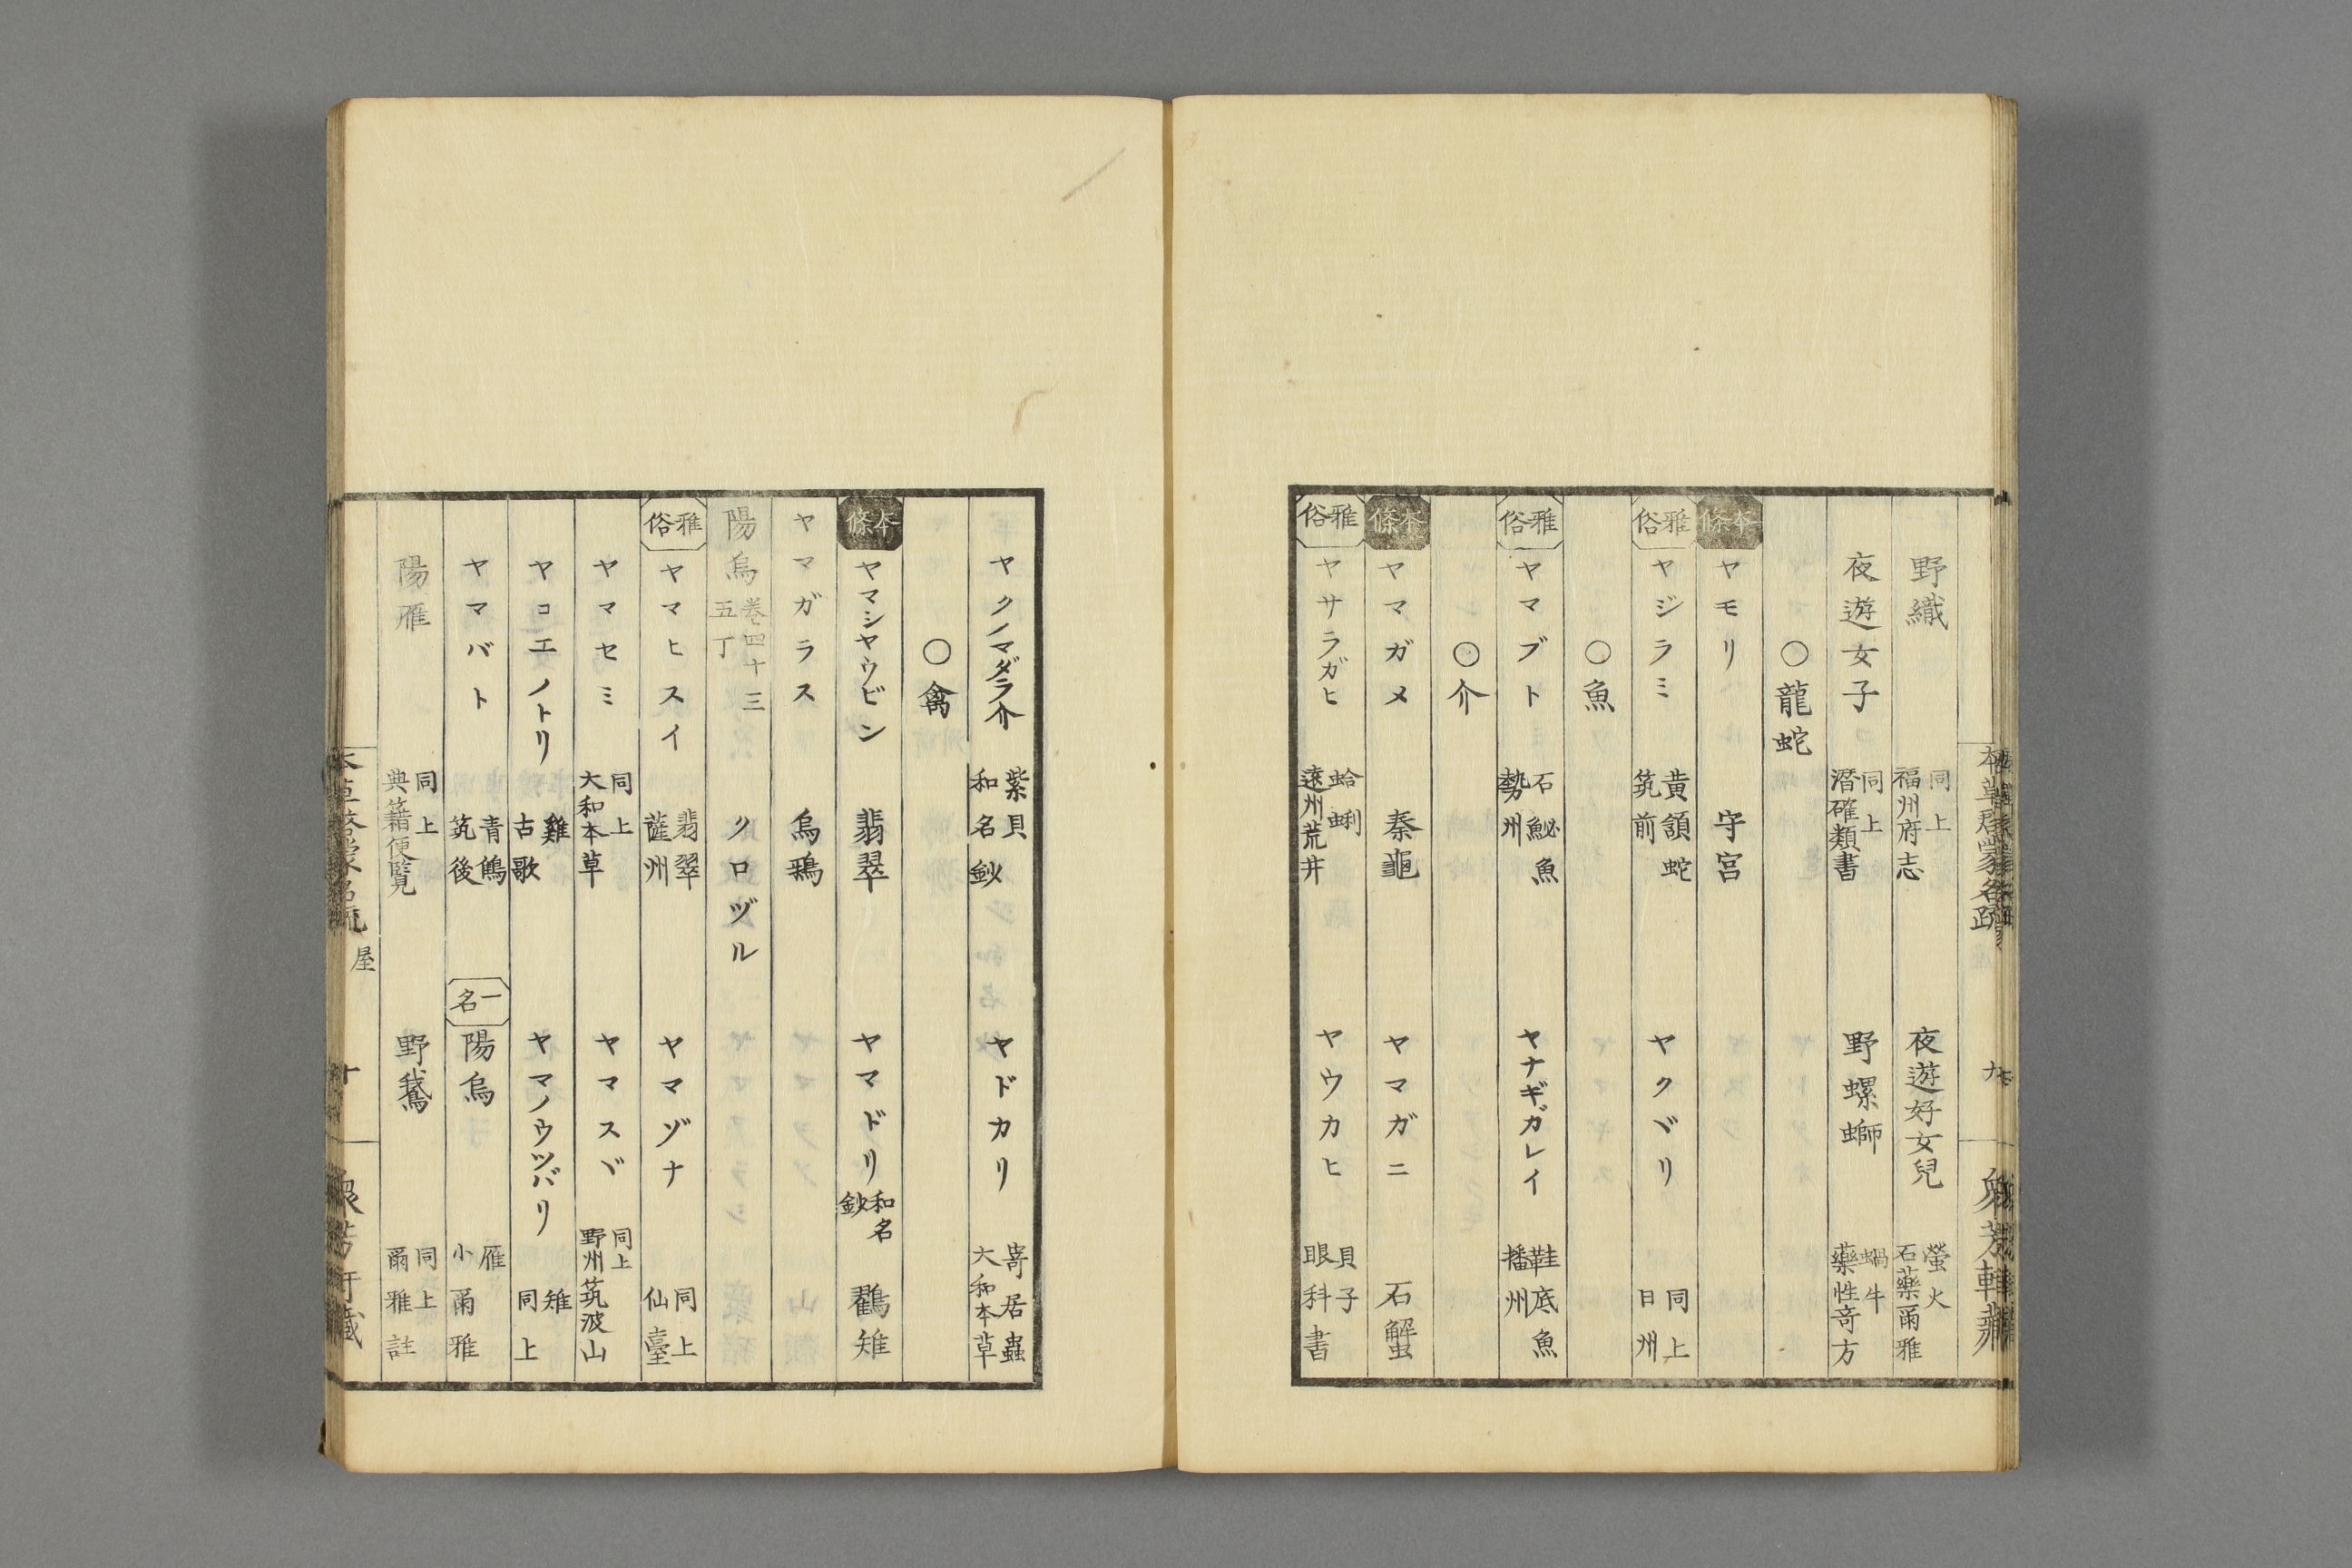 野織 同上 福州府志 夜遊好女兒 螢火 石藥爾雅
夜遊女子 同上 潛確類書 野螺螄 蝸牛 藥性奇方
○龍蛇
本條 ヤモリ 守宮
雅俗 ヤジラミ 黄頷蛇 筑前 ヤクヾリ 同上 日州
○魚
雅俗 ヤマブト 石鮅魚 勢州 ヤナギガレイ 鞋底魚 播州
○介
本條 ヤマガメ 秦龜 ヤマガニ 石蟹
雅俗 ヤサラガヒ 蛤蜊 遠州荒井 ヤウカヒ 貝子 眼科書
ヤクノマダラ介 紫貝 和名鈔 ヤドカリ 寄居蟲 大和本草
○禽
本條 ヤマシヤウビン 翡翠 ヤマドリ 和名鈔 鸐雉
ヤマガラス 烏鴉
陽烏 卷四十三 五丁 クロヅル
雅俗 ヤマヒスイ 翡翠 薩州 ヤマヅナ 同上 仙臺
ヤマセミ 同上 大和本草 ヤマスヾ 同上 野州筑波山
ヤコエノトリ 雞 古歌 ヤマノウツバリ 雉 同上
ヤマバト 青鳩 筑後 一名 陽烏 雁 小爾雅
陽雁 同上 典籍便覽 野鵞 同上 爾雅註
屋 十